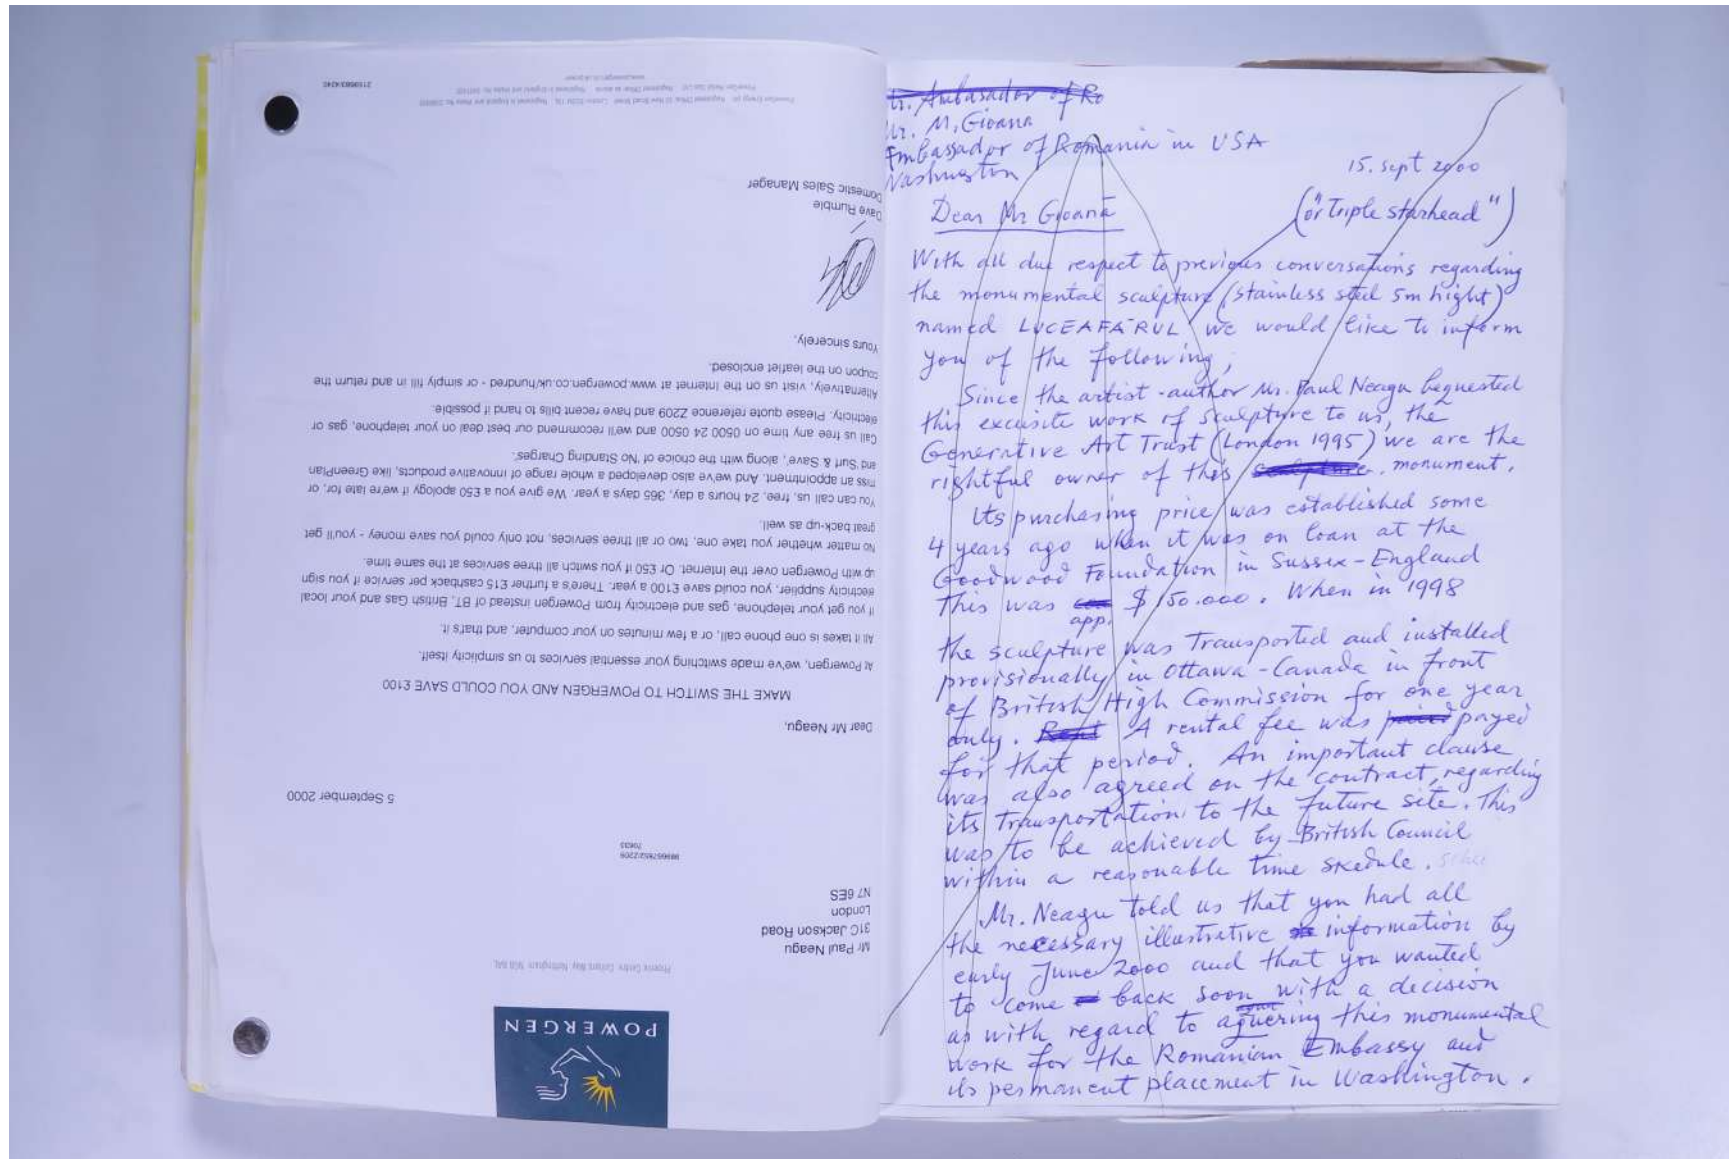 POWERGEN
Mr Paul Neagu
31C Jackson Road
London
N7 6ES
5 September 2000
Dear Mr Neagu,
MAKE THE SWITCH TO POWERGEN AND YOU COULD SAVE £100
At Powergen, we've made switching your essential services to us simplicity itself.
All it takes is one phone call, or a few minutes on your computer, and that's it.
If you get your telephone, gas and electricity from Powergen instead of BT, British Gas and your local
electricity supplier, you could save £100 a year. There's a further £15 cashback per service if you sign
up with Powergen over the Internet. Or £50 if you switch all three services at the same time.
No matter whether you take one, two or all three services, not only could you save money - you'll get
great back-up as well.
You can call us, free, 24 hours a day, 365 days a year. We give you a £50 apology if we're late for, or
miss an appointment. And we've also developed a whole range of innovative products, like GreenPlan
and 'Surf & Save', along with the choice of 'No Standing Charges'.
Call us free any time on 0500 24 0500 and we'll recommend our best deal on your telephone, gas or
electricity. Please quote reference Z209 and have recent bills to hand if possible.
Alternatively, visit us on the Internet at www.powergen.co.uk/hundred - or simply fill in and return the
coupon on the leaflet enclosed.
Yours sincerely,
Dave Rumble
Domestic Sales Manager
Mr. Ambasador of Ro
Mr. M. Gioana
Embassador of Romania in USA
Washington
15. Sept 2000
Dear Mr Gioană
("or Triple starhead")
With all due respect to previous conversations regarding
the monumental sculpture (stainless steel 5m hight)
named LUCEAFĂRUL we would like to inform
you of the following;
Since the artist-author Mr. Paul Neagu bequested
this excusite work of sculpture to us, the
Generative Art Trust (London 1995) we are the
rightful owner of this sculpture. monument.
Its purchasing price was established some
4 years ago when it was on loan at the
Goodwood Foundation in Sussex-England
This was $150.000. When in 1998
app.
the sculpture was Transported and installed
provisionally in Ottawa-Canada in front
of British High Commission for one year
only. Rent A rental fee was payed
for that period. An important clause
was also agreed on the contract, regarding
its transportation to the future site. This
was to be achieved by British Council
within a reasonable time skedule.
Mr. Neagu told us that you had all
the necessary illustrative information by
early June 2000 and that you wanted
to come back soon with a decision
as with regard to aquering this monumental
work for the Romanian Embassy and
its permanent placement in Washington.